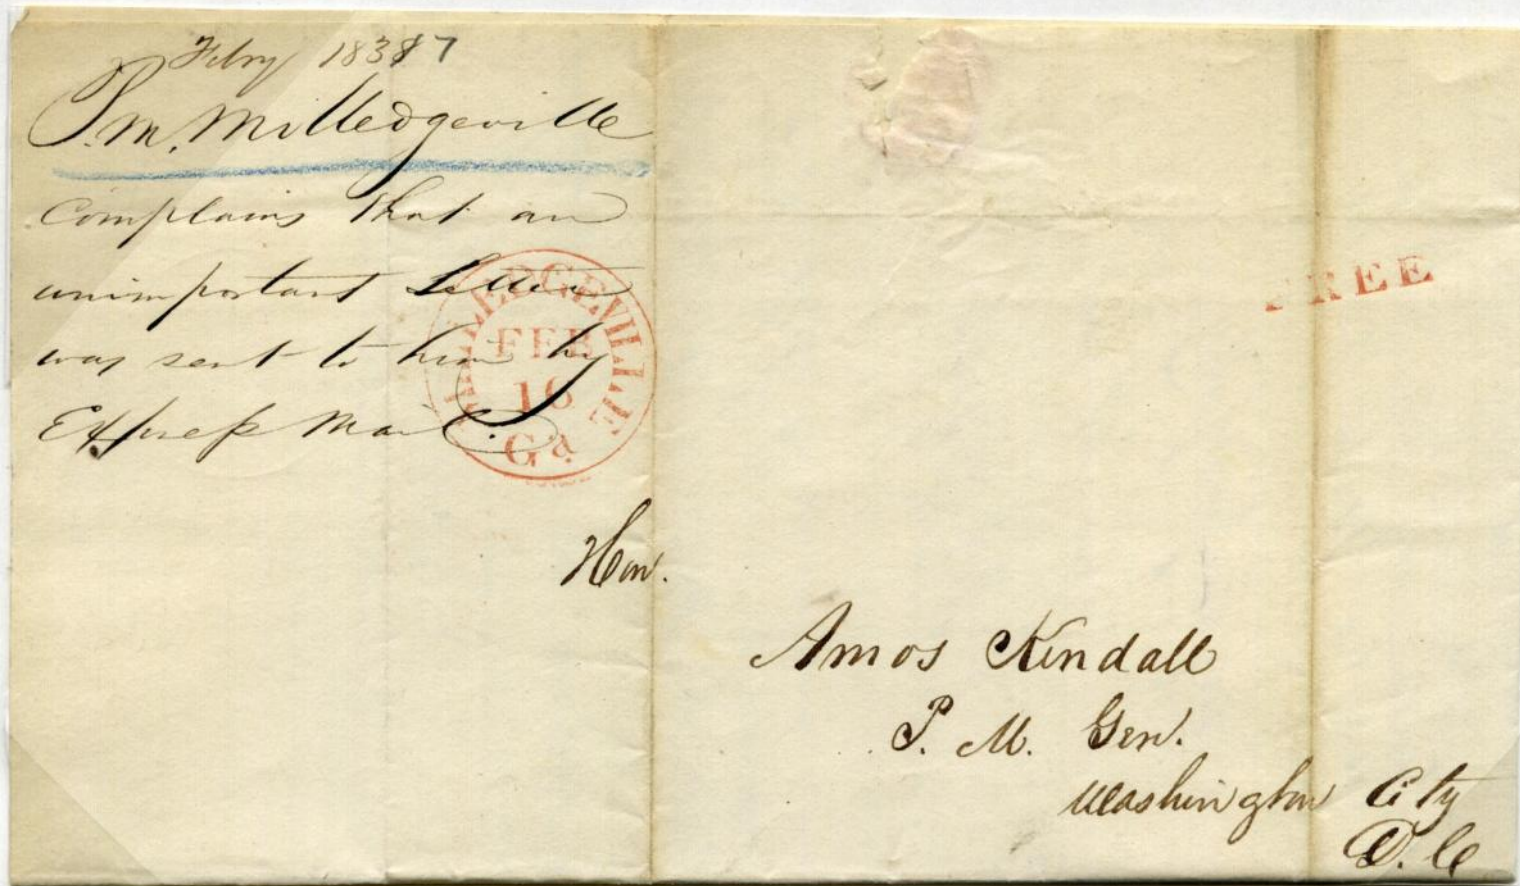 Febry 1837
P.M. Milledgeville
complains that an
unimportant Letter
was sent to him by
Express Mail.
MILLEDGEVILLE
FEB
16
Ga
FREE
Hon.
Amos Kendall
P. M. Gen.
Washington City
D. C